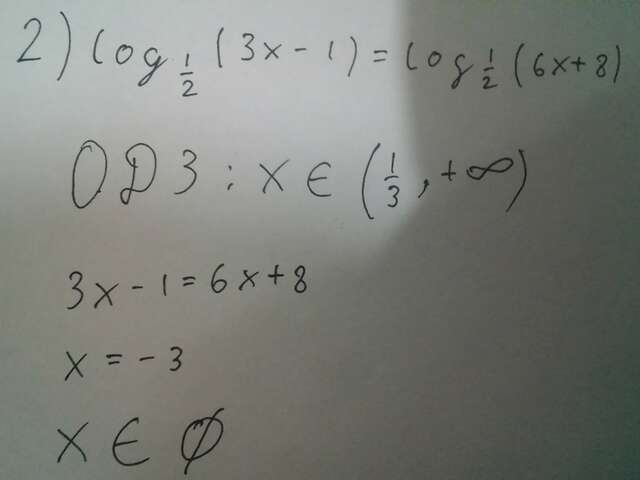 2) log 1/2 (3x - 1) = log 1/2 (6x + 8)
ОДЗ : x ∈ (1/3, +∞)
3x - 1 = 6x + 8
x = - 3
x ∈ ∅